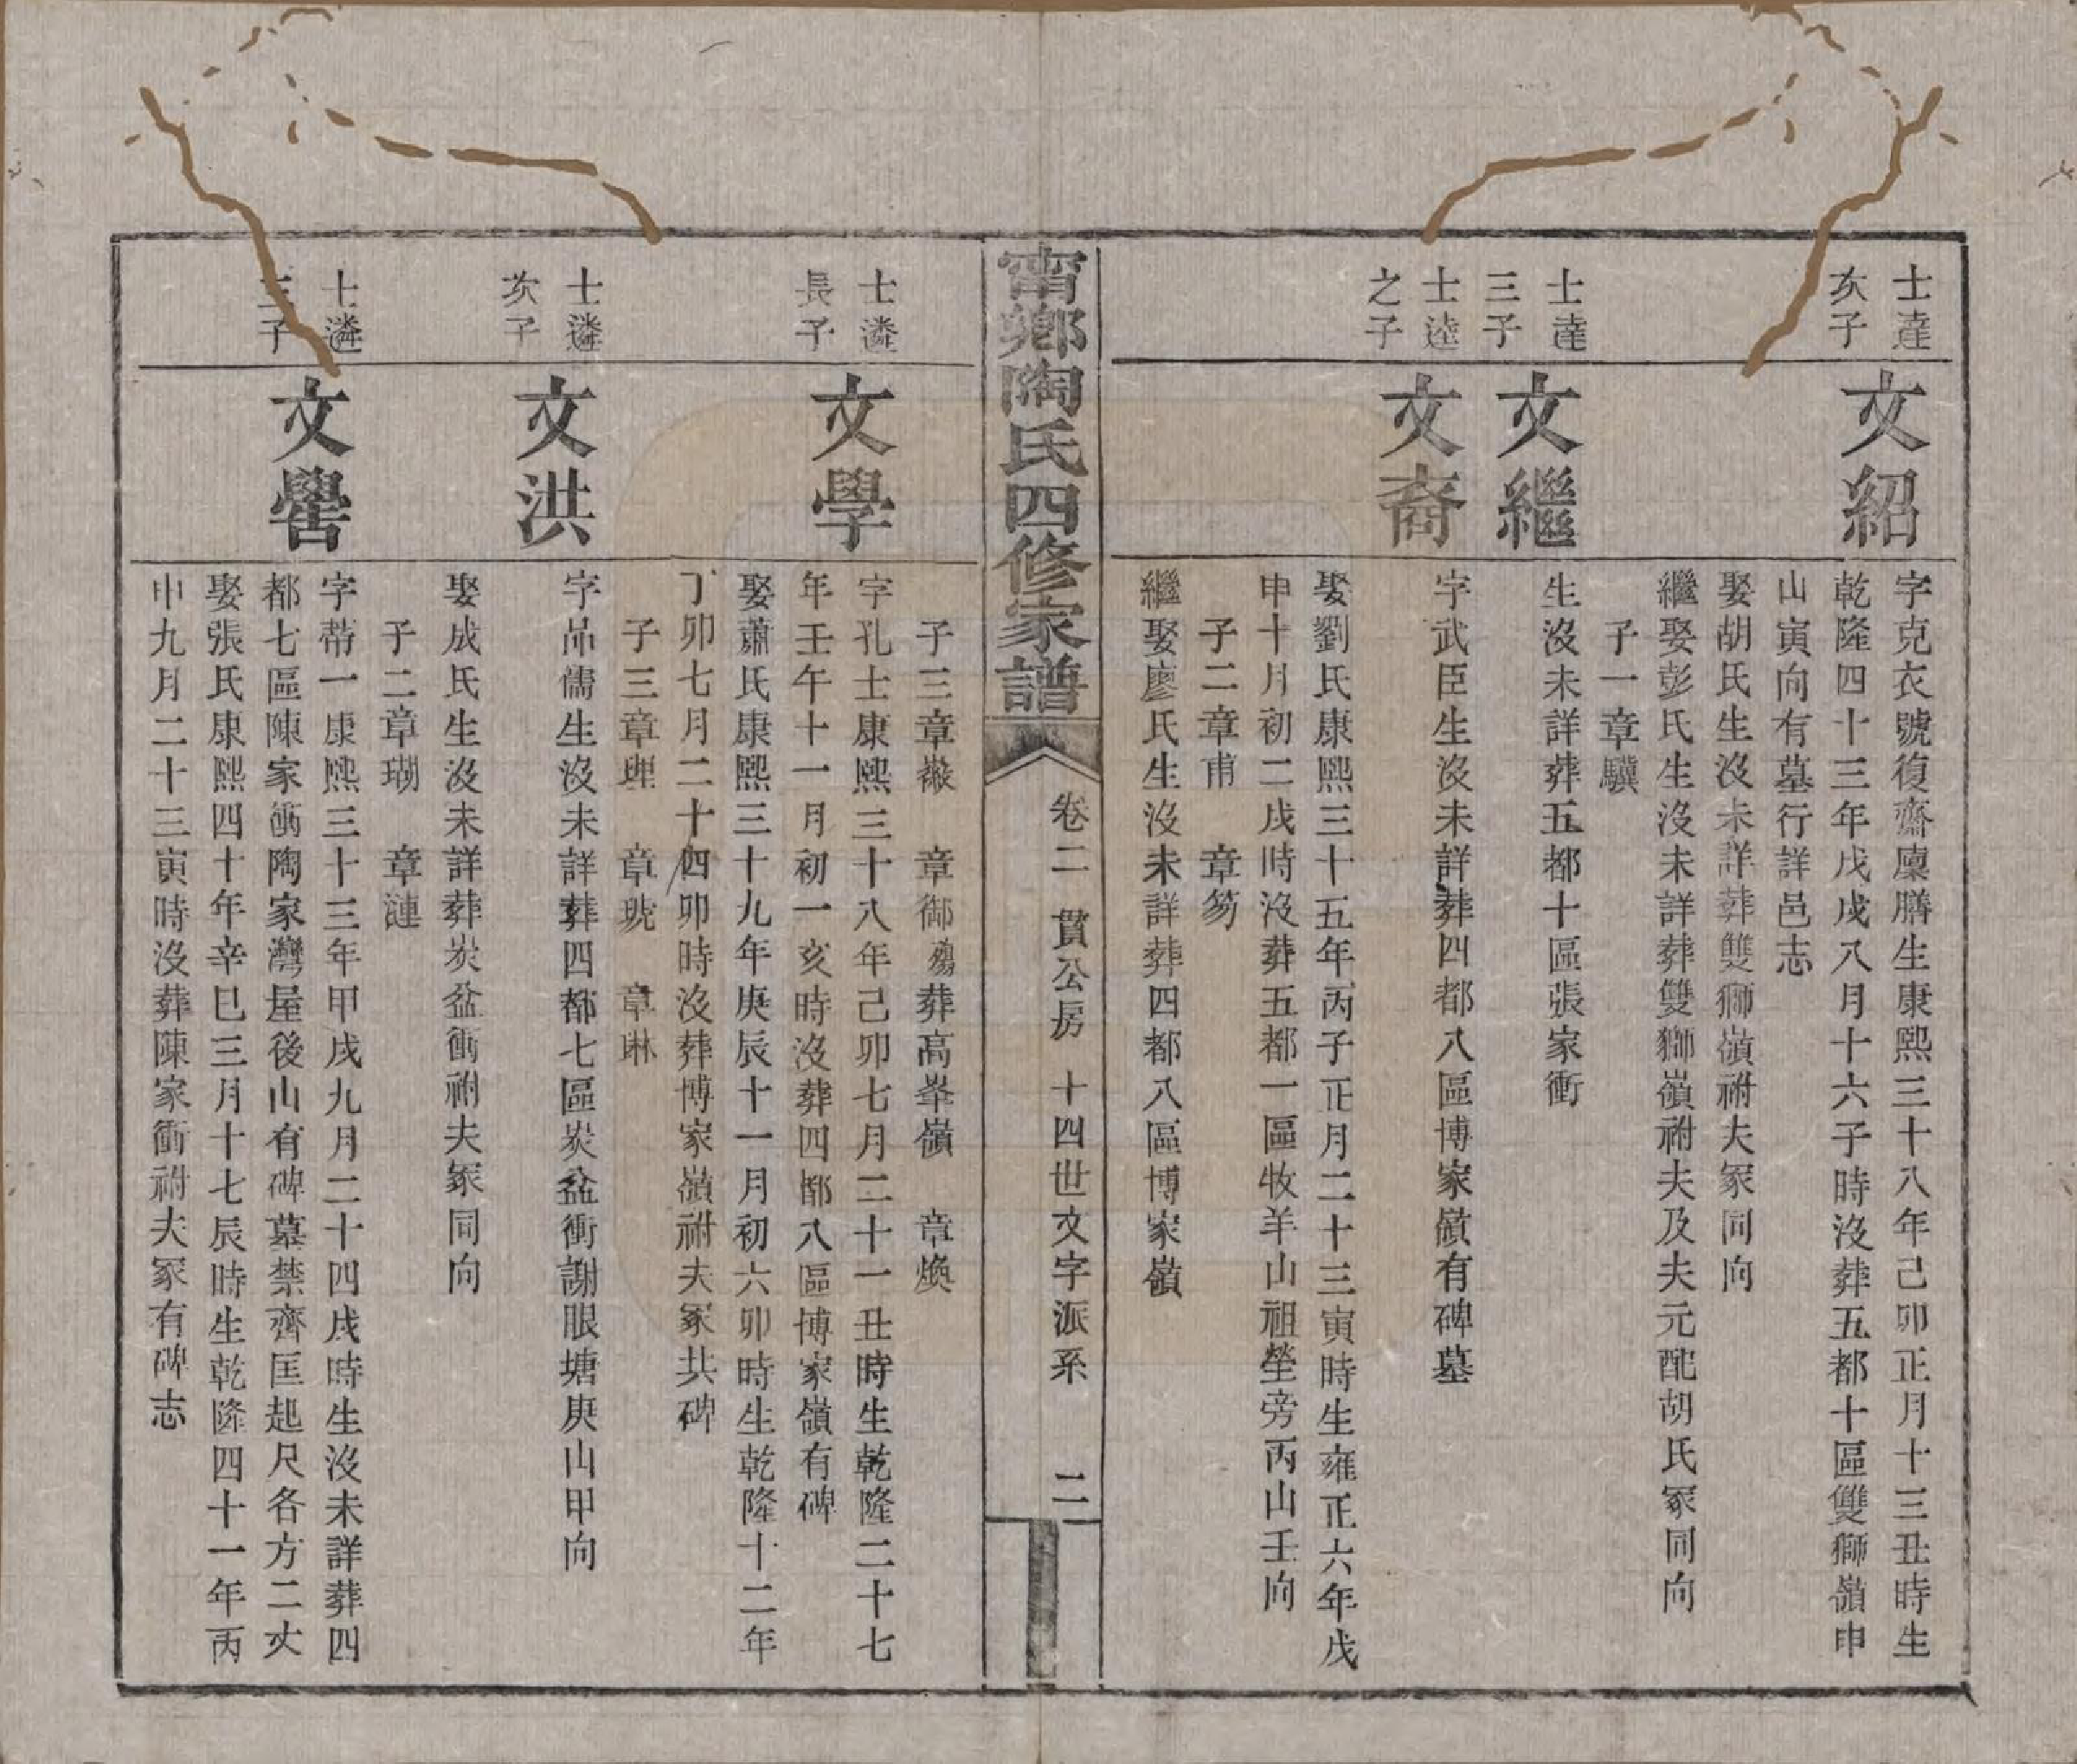 士達
次子
文紹
字克衣號復齋廩膳生康熙三十八年己卯正月十三丑時生
乾隆四十三年戊戌八月十六子時沒葬五都十區雙獅嶺申
山寅向有墓行詳邑志
娶胡氏生沒未詳葬雙獅嶺祔夫冢同向
繼娶彭氏生沒未詳葬雙獅嶺祔夫及夫元配胡氏冢同向
子一章驥
士達
三子
文繼
生沒未詳葬五都十區張家衝
士逵
之子
文裔
字武臣生沒未詳葬四都八區博家嶺有碑墓
娶劉氏康熙三十五年丙子正月二十三寅時生雍正六年戊
申十月初二戌時沒葬五都一區牧羊山祖塋旁丙山壬向
子二章甫　章笏
繼娶廖氏生沒未詳葬四都八區博家嶺
甯鄉陶氏四修家譜
卷二　貫公房　十四世文字派系　二
子三章　章御殤葬高峯嶺　章煥
士潾
長子
文學
字孔士康熙三十八年己卯七月二十一丑時生乾隆二十七
年壬午十一月初一亥時沒葬四都八區博家嶺有碑
娶蕭氏康熙三十九年庚辰十一月初六卯時生乾隆十二年
丁卯七月二十四卯時沒葬博家嶺祔夫冢共碑
子三章理　章琥　章琳
士遴
次子
文洪
字品儒生沒未詳葬四都七區炭盆衝謝眼塘庚山甲向
娶成氏生沒未詳葬炭盆衝祔夫冢同向
子二章瑚　章漣
士遴
三子
文嚳
字帶一康熙三十三年甲戌九月二十四戌時生沒未詳葬四
都七區陳家衝陶家灣屋後山有碑墓禁齊匡起尺各方二丈
娶張氏康熙四十年辛巳三月十七辰時生乾隆四十一年丙
申九月二十三寅時沒葬陳家衝祔夫冢有碑志